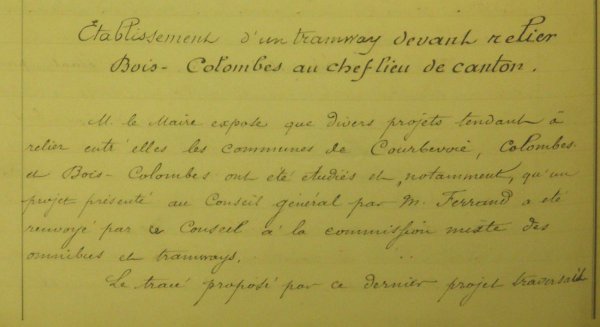 Etablissement d'un tramway devant relier
Bois-Colombes au chef lieu de canton.
M. le Maire expose que divers projets tendant à
relier entr'elles les communes de Courbevoie, Colombes
et Bois-Colombes ont été étudiés et, notamment, qu'un
projet présenté au Conseil général par M. Ferrand a été
renvoyé par ce Conseil à la commission mixte des
omnibus et tramways.
Le tracé proposé par ce dernier projet traversait